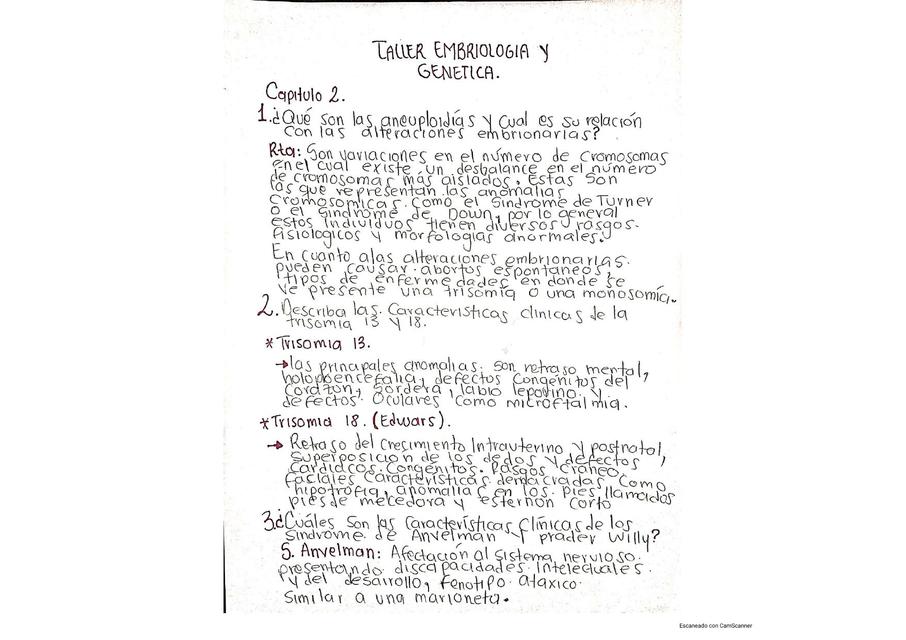 TALLER EMBRIOLOGIA Y
GENETICA.
Capitulo 2.
1.¿Qué son las aneuploidías y cual es su relación
con las alteraciones embrionarias?
Rta: Son variaciones en el número de cromosomas
en el cual existe un desbalance en el número
de cromosomas más aislados, estas son
las que representan las anomalias
cromosomicas. como el sindrome de Turner
o el sindrome de Down, por lo general
estos individuos tienen diversos rasgos.
fisiologicos y morfologias anormales.
En cuanto alas alteraciones embrionarias.
pueden causar. abortos espontaneos,
tipos de enfermedades en donde se
ve presente una trisomia o una monosomia.
2. Describa las. Caracteristicas clinicas de la
trisomia 13 y 18.
* Trisomia 13.
→ las principales anomalias. son retraso mental,
holoproencefalia, defectos congénitos del
corazon, sordera, labio leporino. y.
defectos. Oculares como microftalmia.
* Trisomia 18. (Edwars).
→ Retraso del crecimiento Intrauterino y postnatal,
superposicion de los dedos y defectos
cardiacos. congénitos. Rasgos craneo
faciales caracteristicas demacradas como
hipotrofia, anomalias en los. pies llamados
pies de mecedora y esternon corto
3.¿Cuáles son las características clínicas de los
sindrome. de Anvelman y prader willy?
S. Anvelman: Afectación al sistema nervioso.
presentando discapacidades. Intelectuales.
y del desarrollo, fenotipo. ataxico.
similar a una marioneta.
Escaneado con CamScanner